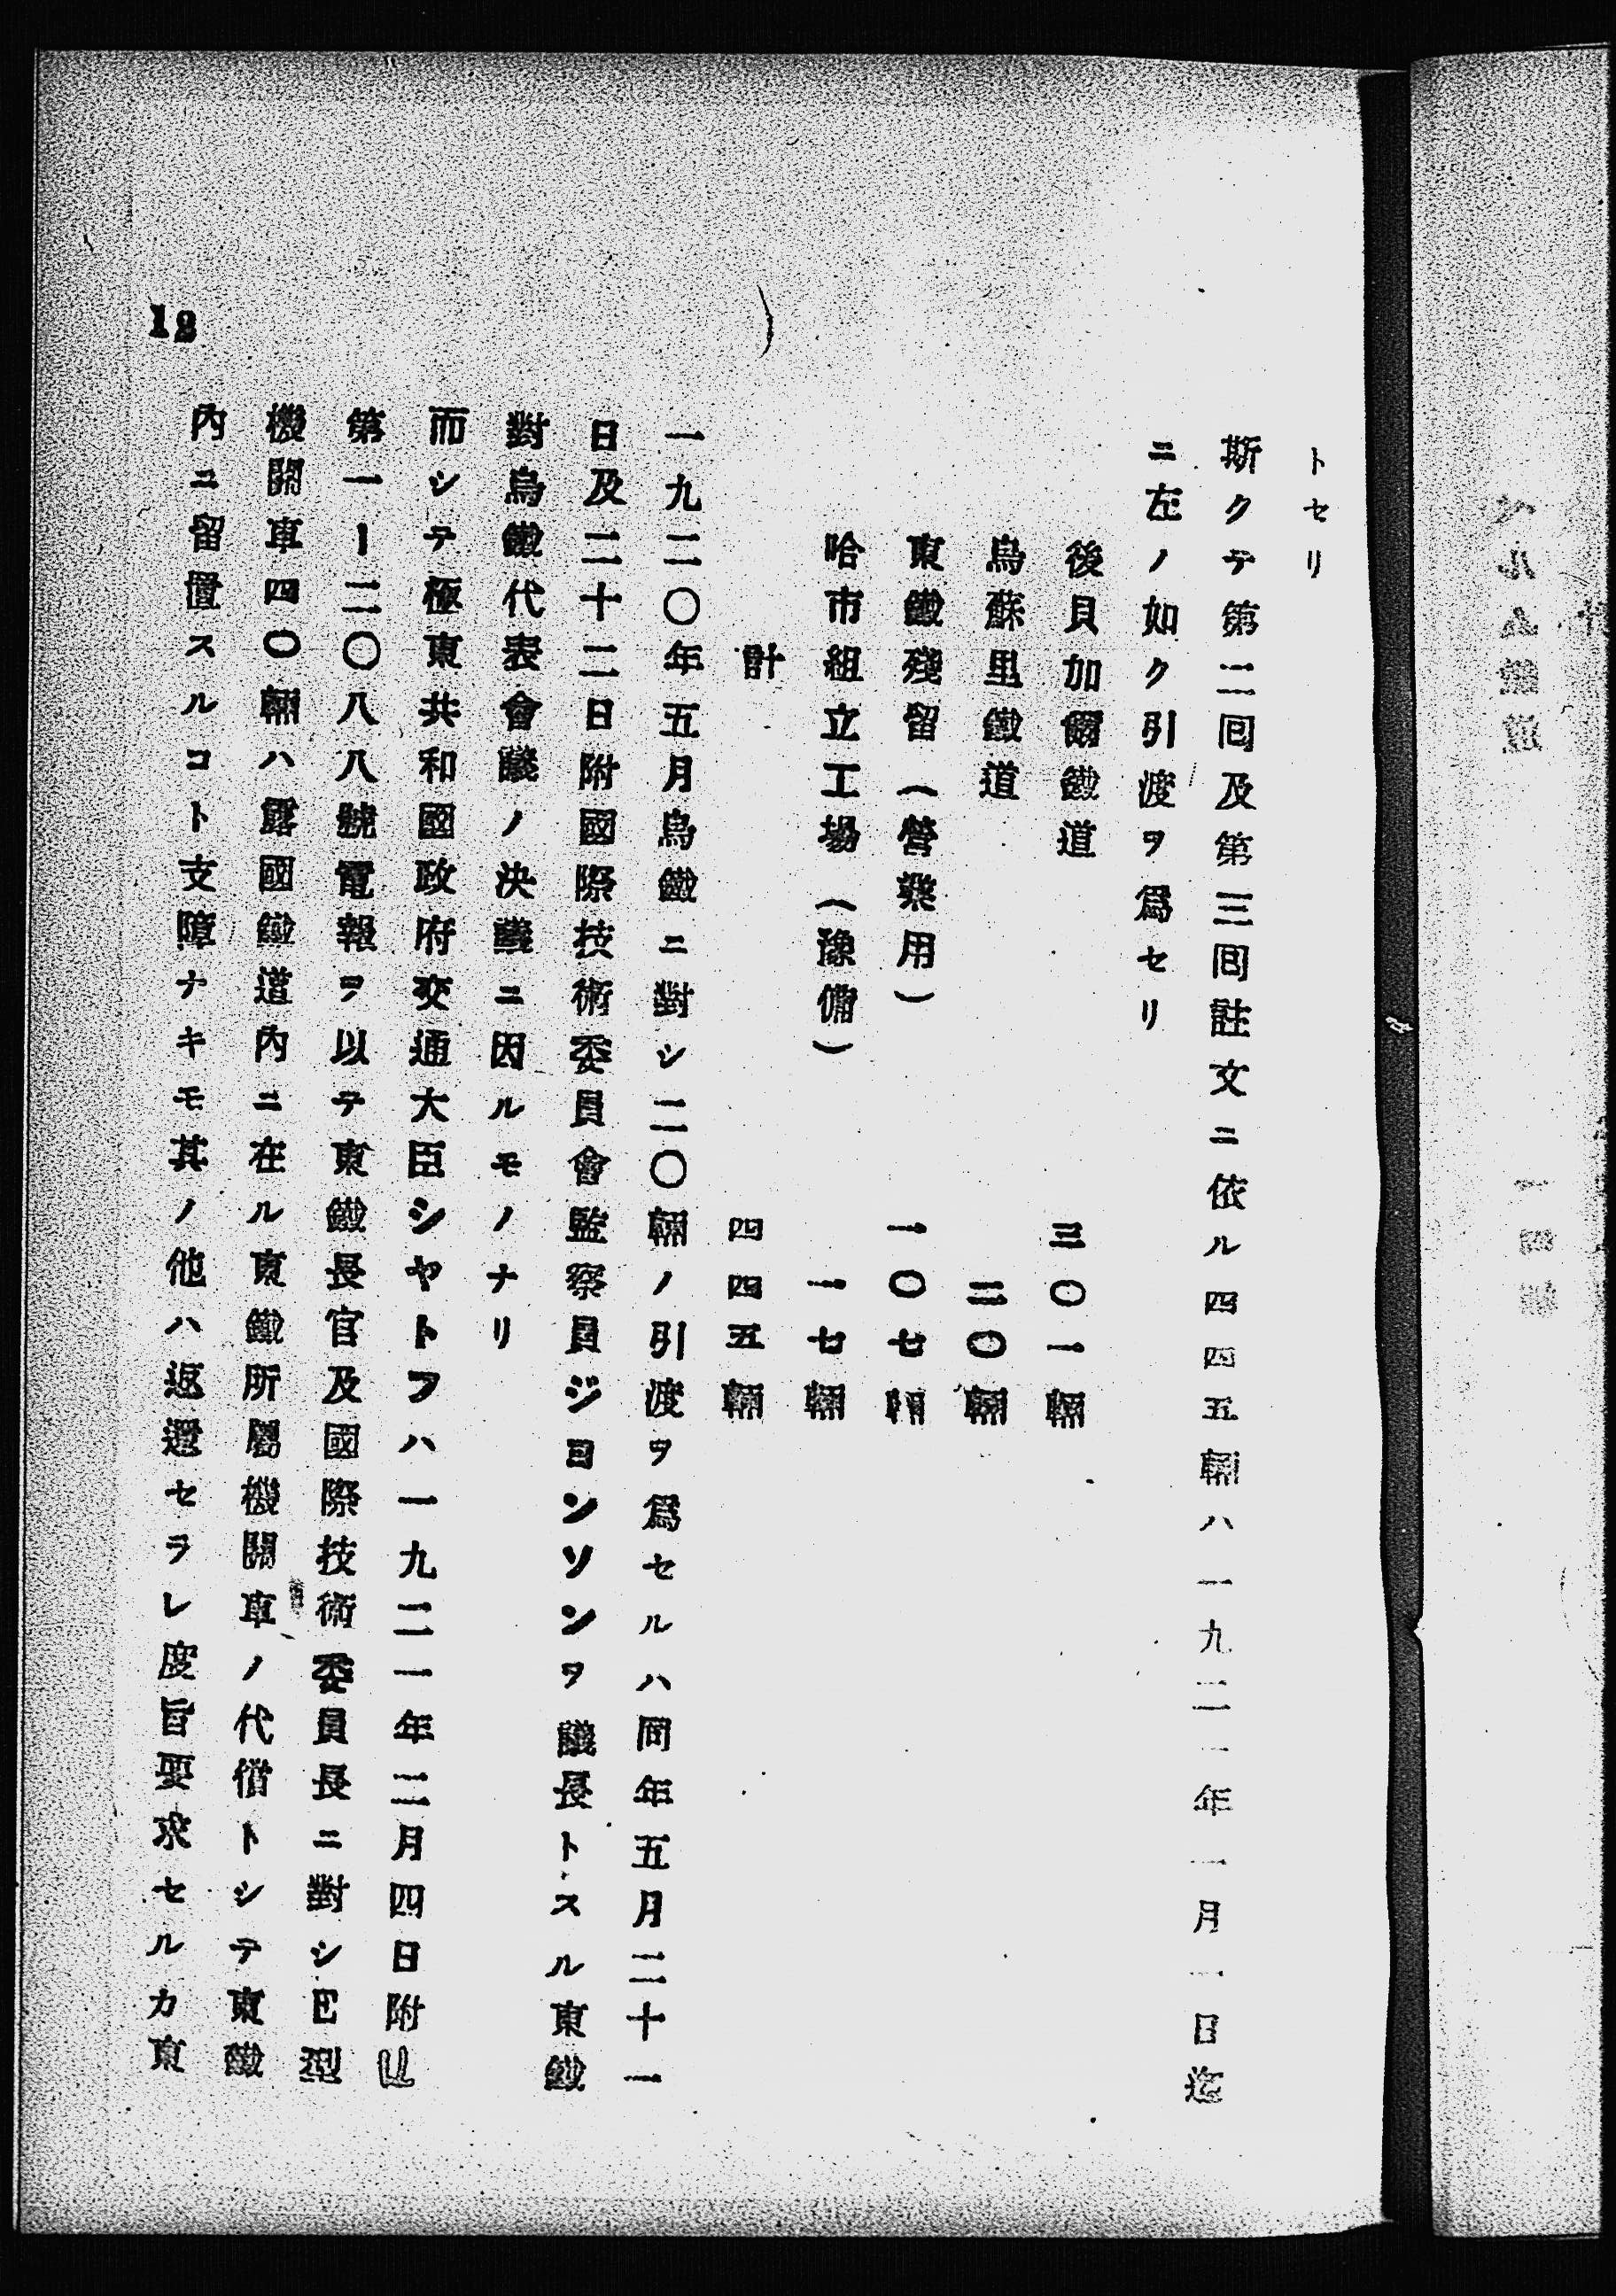 トセリ
斯クテ第二囘及第三囘註文ニ依ル四四五輛ハ一九二一年一月一日迄
ニ左ノ如ク引渡ヲ爲セリ
後貝加爾鐵道 三〇一輛
烏蘇里鐵道 二〇輛
東鐵殘留(營業用) 一〇七輛
哈市組立工場(豫備) 一七輛
計 四四五輛
一九二〇年五月烏鐵ニ對シ二〇輛ノ引渡ヲ爲セルハ同年五月二十一
日及二十二日附國際技術委員會監察員ジヨンソンヲ議長トスル東鐵
對烏鐵代表會議ノ決議ニ因ルモノナリ
而シテ極東共和國政府交通大臣シヤトフハ一九二一年二月四日附
第一ー二〇八八號電報ヲ以テ東鐵長官及國際技術委員長ニ對シE型
機關車四〇輛ハ露國鐵道內ニ在ル東鐵所屬機關車ノ代償トシテ東鐵
內ニ留置スルコト支障ナキモ其ノ他ハ返還セラレ度旨要求セルカ東